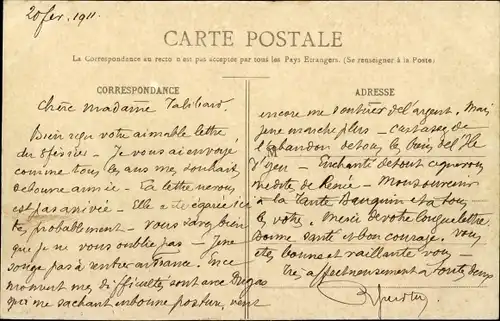 20 fev. 1911.
CARTE POSTALE
La Correspondance au recto n'est pas acceptée par tous les Pays Etrangers. (Se renseigner à la Poste)
CORRESPONDANCE
Chère Madame
Bien reçu votre aimable lettre
du février — Je vous ai envoyé
comme tous les ans mes souhaits
de bonne année — La lettre ne vous
est pas arrivée — Elle a été égarée ici
probablement — Vous savez bien
que je ne vous oublie pas — Je ne
songe pas à rentrer en France. En ce
moment mes difficultés sont
qui me sachant en bonne posture, vont
ADRESSE
encore me soutirer de l'argent. Mais
je ne marche plus —
l'abandon de tous les biens de l'Ile
d'Yeu — Enchanté de tout ce que vous
me dites de Renée — Mon souvenir
à la Tante et à tous
les vôtres. Merci de votre longue lettre
Bonne santé et bon courage. Vous
êtes bonne et vaillante vous —
Très affectueusement à toutes deux